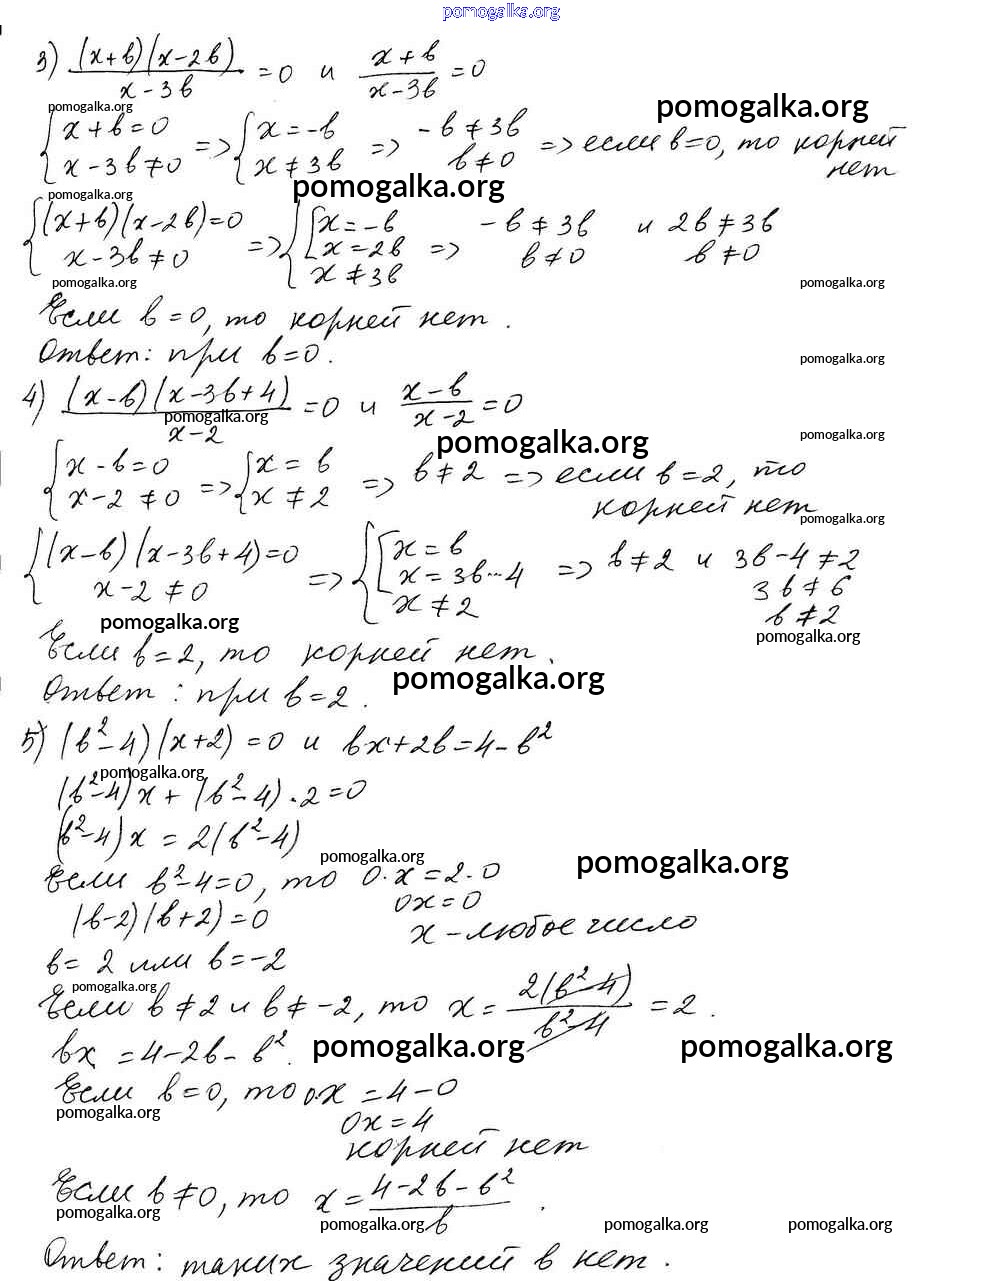 pomogalka.org
3) (x+b)(x-2b)/(x-3b) = 0 и (x+b)/(x-3b) = 0
pomogalka.org pomogalka.org
{x+b=0 x-3b≠0 => {x=-b x≠3b => -b≠3b b≠0 => если b=0, то корней нет
pomogalka.org pomogalka.org
{(x+b)(x-2b)=0 x-3b≠0 => {[x=-b x=2b x≠3b => -b≠3b b≠0 и 2b≠3b b≠0
pomogalka.org pomogalka.org
Если b=0, то корней нет.
Ответ: при b=0.
pomogalka.org
4) (x-b)(x-3b+4)/(x-2) = 0 и (x-b)/(x-2) = 0
pomogalka.org pomogalka.org pomogalka.org
{x-b=0 x-2≠0 => {x=b x≠2 => b≠2 => если b=2, то корней нет
pomogalka.org
{(x-b)(x-3b+4)=0 x-2≠0 => {[x=b x=3b-4 x≠2 => b≠2 и 3b-4≠2 3b≠6 b≠2
pomogalka.org pomogalka.org
Если b=2, то корней нет.
Ответ: при b=2.
pomogalka.org
5) (b²-4)(x+2)=0 и bx+2b=4-b²
pomogalka.org
(b²-4)x+(b²-4)·2=0
(b²-4)x=2(b²-4)
pomogalka.org pomogalka.org
Если b²-4=0, то 0·x=2·0
(b-2)(b+2)=0 0x=0
x-любое число
b=2 или b=-2
pomogalka.org
Если b≠2 и b≠-2, то x=2(b²-4)/(b²-4)=2.
bx=4-2b-b².
pomogalka.org pomogalka.org
Если b=0, то 0·x=4-0
pomogalka.org
0x=4
корней нет
Если b≠0, то x=(4-2b-b²)/b.
pomogalka.org pomogalka.org pomogalka.org pomogalka.org
Ответ: таких значений b нет.